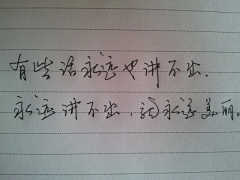 有些话永远也讲不出.
永远讲不出,就永远美丽。